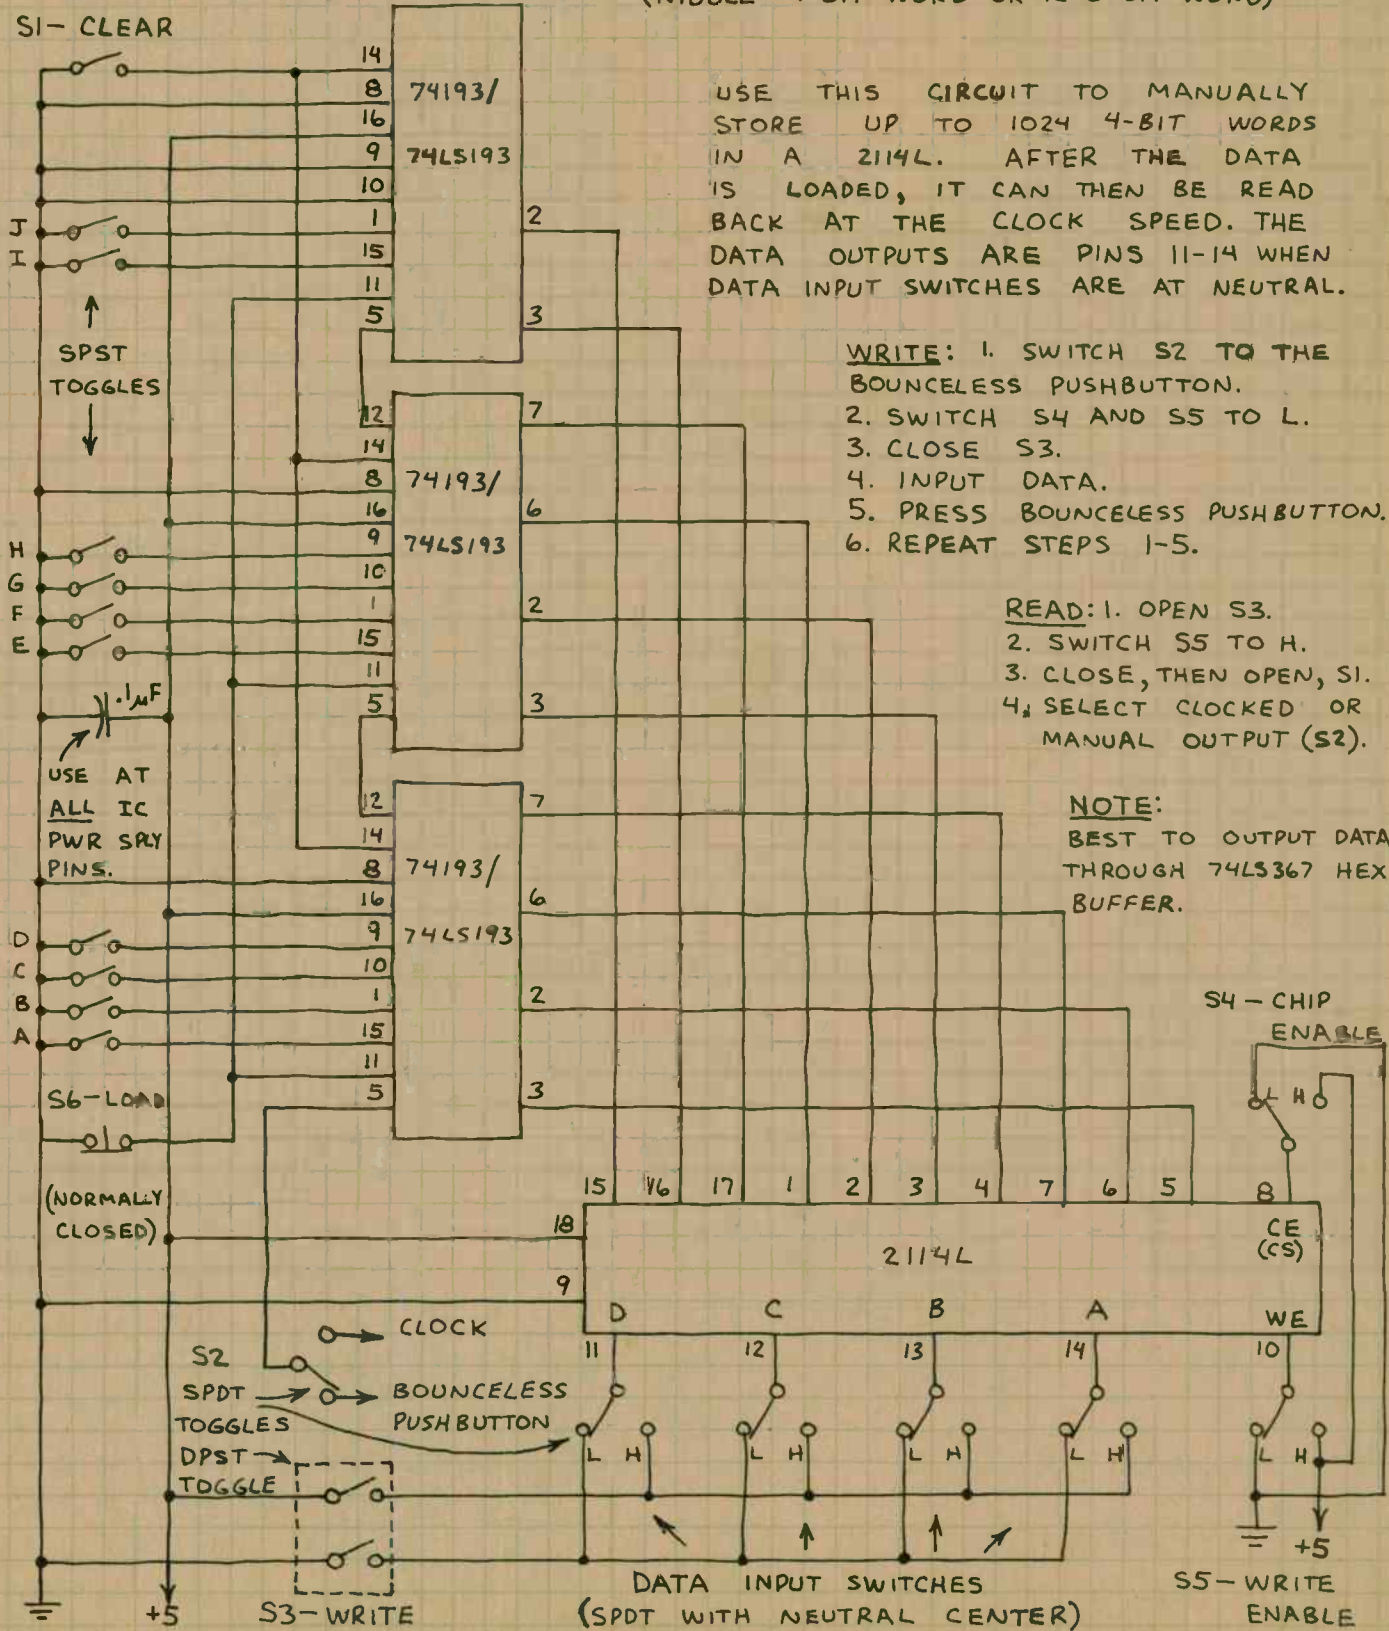 S1- CLEAR
14
8
16
9
10
1
15
11
5
74193/
74LS193
2
3
J
I
SPST
TOGGLES
USE THIS CIRCUIT TO MANUALLY
STORE UP TO 1024 4-BIT WORDS
IN A 2114L. AFTER THE DATA
IS LOADED, IT CAN THEN BE READ
BACK AT THE CLOCK SPEED. THE
DATA OUTPUTS ARE PINS 11-14 WHEN
DATA INPUT SWITCHES ARE AT NEUTRAL.
WRITE: 1. SWITCH S2 TO THE
BOUNCELESS PUSHBUTTON.
2. SWITCH S4 AND S5 TO L.
3. CLOSE S3.
4. INPUT DATA.
5. PRESS BOUNCELESS PUSHBUTTON.
6. REPEAT STEPS 1-5.
READ: 1. OPEN S3.
2. SWITCH S5 TO H.
3. CLOSE, THEN OPEN, S1.
4. SELECT CLOCKED OR
MANUAL OUTPUT (S2).
NOTE:
BEST TO OUTPUT DATA
THROUGH 74LS367 HEX
BUFFER.
12
14
8
16
9
10
1
15
11
5
74193/
74LS193
7
6
2
3
H
G
F
E
.1µF
USE AT
ALL IC
PWR SPLY
PINS.
12
14
8
16
9
10
1
15
11
5
74193/
74LS193
7
6
2
3
D
C
B
A
S6-LOAD
(NORMALLY
CLOSED)
S4 - CHIP
ENABLE
L H
15 16 17 1 2 3 4 7 6 5 8
18
9
2114L
CE
(CS)
D C B A WE
11 12 13 14 10
CLOCK
S2
SPDT
TOGGLES
BOUNCELESS
PUSHBUTTON
DPST
TOGGLE
L H L H L H L H L H
+5
+5
S3-WRITE
DATA INPUT SWITCHES
(SPDT WITH NEUTRAL CENTER)
S5-WRITE
ENABLE